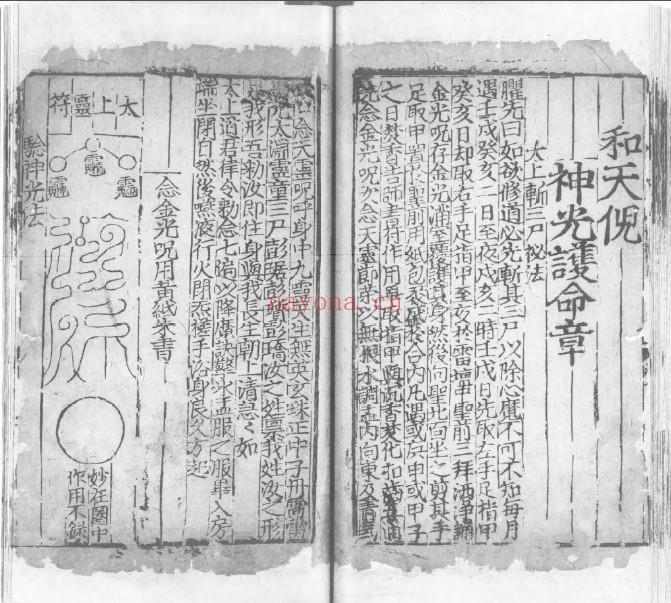 和天倪
神光護命章
太上斬三尸祕法
臞先曰如欲修道必先斬其三尸以除心魔不可不知每月
遇壬戌癸亥二日至夜戌亥二時壬戌日先取左手足指甲
癸亥日却取右手足指甲至夜於雷壇聖前三拜洒淨誦
金光呪存金光滿室擁護其身然後向聖北面坐之剪其手
足取甲置於聖前用紙包裹藏於合內凡遇或甲或甲子
之日焚香告師書符作用再以指甲與沉香焚化扣齒
先念金光呪次念天靈無根水調盂內向東方書
念天靈呪呼身中九靈天生無英玄珠正中子丹雷
太淵靈童三尸彭琚彭質彭矯汝之姓稟我姓汝之形
我形吾勑汝即住身與我長生朝上清急々如
太上道君律令勑念七遍以降訣水盂服之服畢入房
端坐閉目然後嚥液行火閉炁搓手浴身良久方起
一念金光呪用黃紙朱書
太上靈符
驗神光法
妙在圈中
作用不錄
nayona.cn